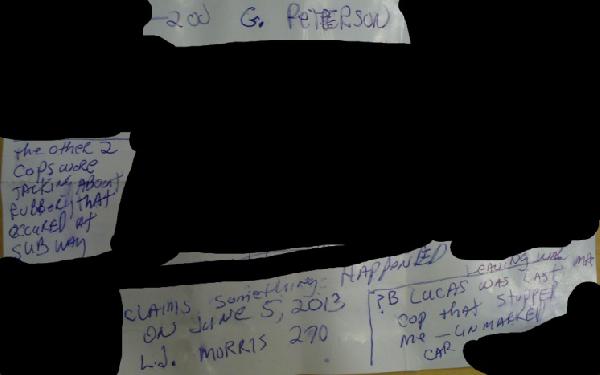 -200 G. PETERSON
The other 2
COPS were
ABOUT
THAT
OCCURED AT
SUBWAY
CLAIMS something HAPPENED
ON JUNE 5, 2013
L.J. MORRIS 290
LEAVING
?B LUCAS WAS LAST
COP that STOPPED
me - UNMARKED
CAR